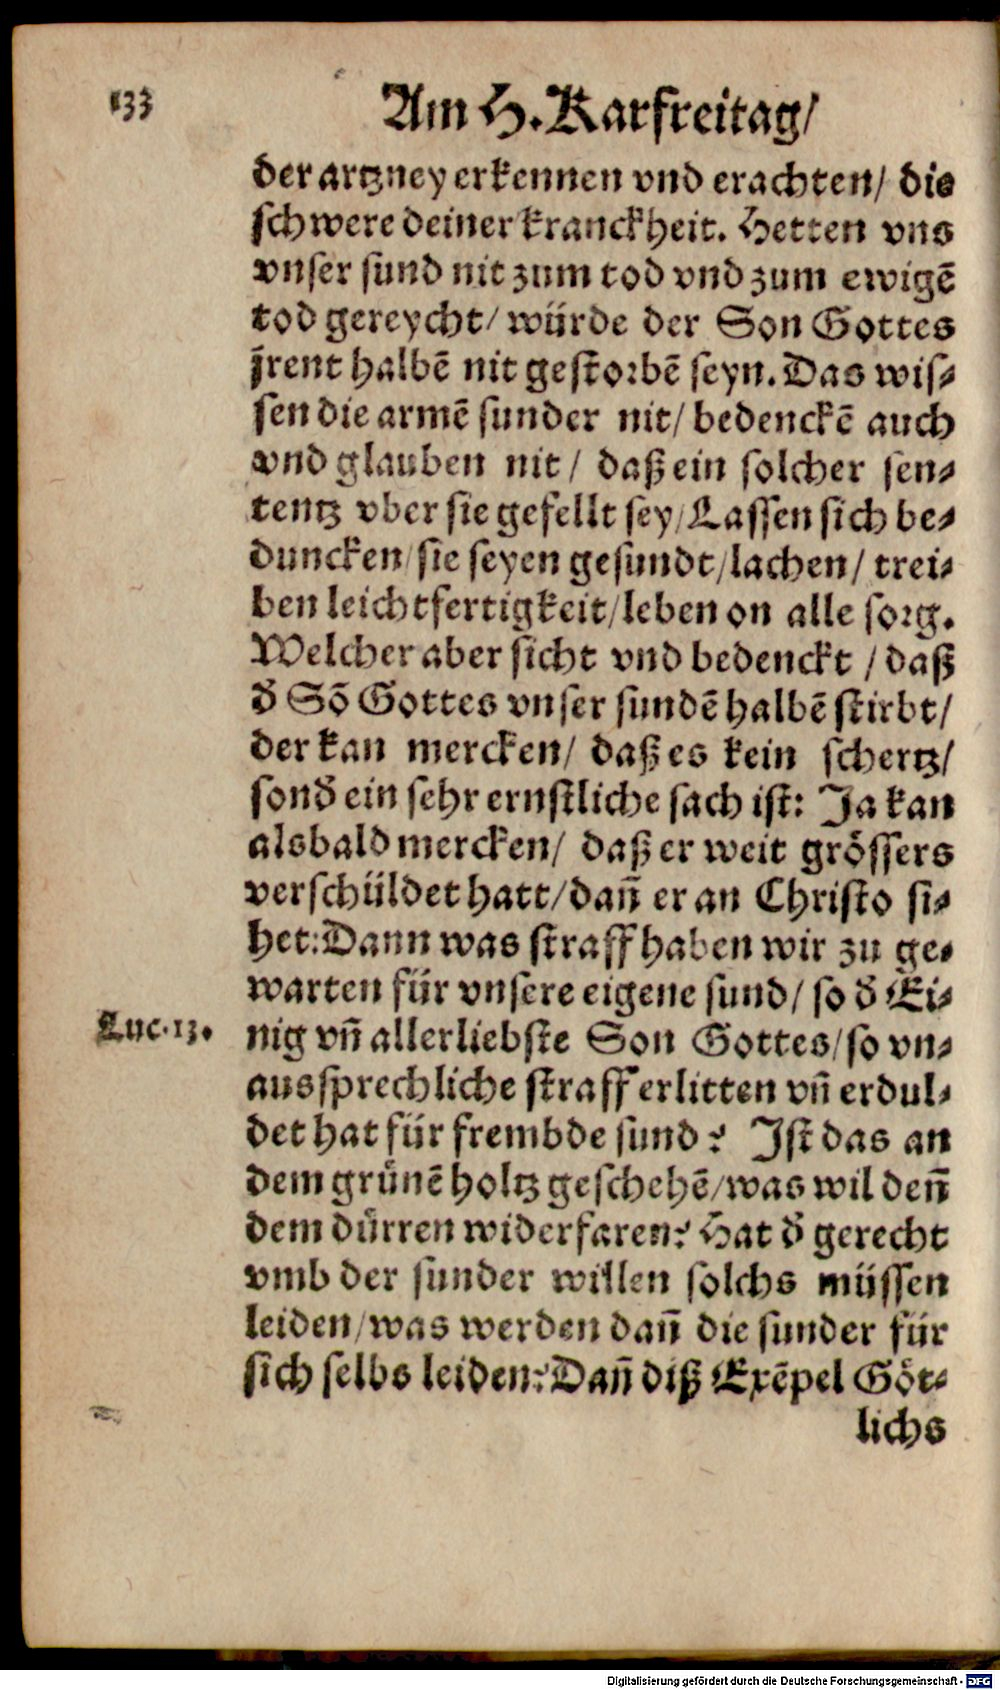 133
Am H. Karfreitag/
der artzney erkennen vnd erachten/ die
schwere deiner kranckheit. Hetten vns
vnser sund nit zum tod vnd zum ewigē
tod gereycht/ würde der Son Gottes
jrent halbē nit gestorbē seyn. Das wis-
sen die armē sunder nit/ bedenckē auch
vnd glauben nit/ daß ein solcher sen-
tentz vber sie gefellt sey/ Lassen sich be-
duncken/ sie seyen gesundt/ lachen/ trei-
ben leichtfertigkeit/ leben on alle sorg.
Welcher aber sicht vnd bedenckt/ daß
d̕ Sō Gottes vnser sundē halbē stirbt/
der kan mercken/ daß es kein schertz/
sond̕ ein sehr ernstliche sach ist: Ja kan
alsbald mercken/ daß er weit grössers
verschüldet hatt/ dañ er an Christo si-
het: Dann was straff haben wir zu ge-
warten für vnsere eigene sund/ so d̕ Ei-
Luc. 13.
nig vñ allerliebste Son Gottes/ so vn-
aussprechliche straff erlitten vñ erdul-
det hat für frembde sund? Ist das an
dem grünē holtz geschehē/ was wil deñ
dem dürren widerfaren? Hat d̕ gerecht
vmb der sunder willen solchs müssen
leiden/ was werden dañ die sunder für
sich selbs leiden? Dañ diß Exēpel Göt-
lichs
Digitalisierung gefördert durch die Deutsche Forschungsgemeinschaft - DFG